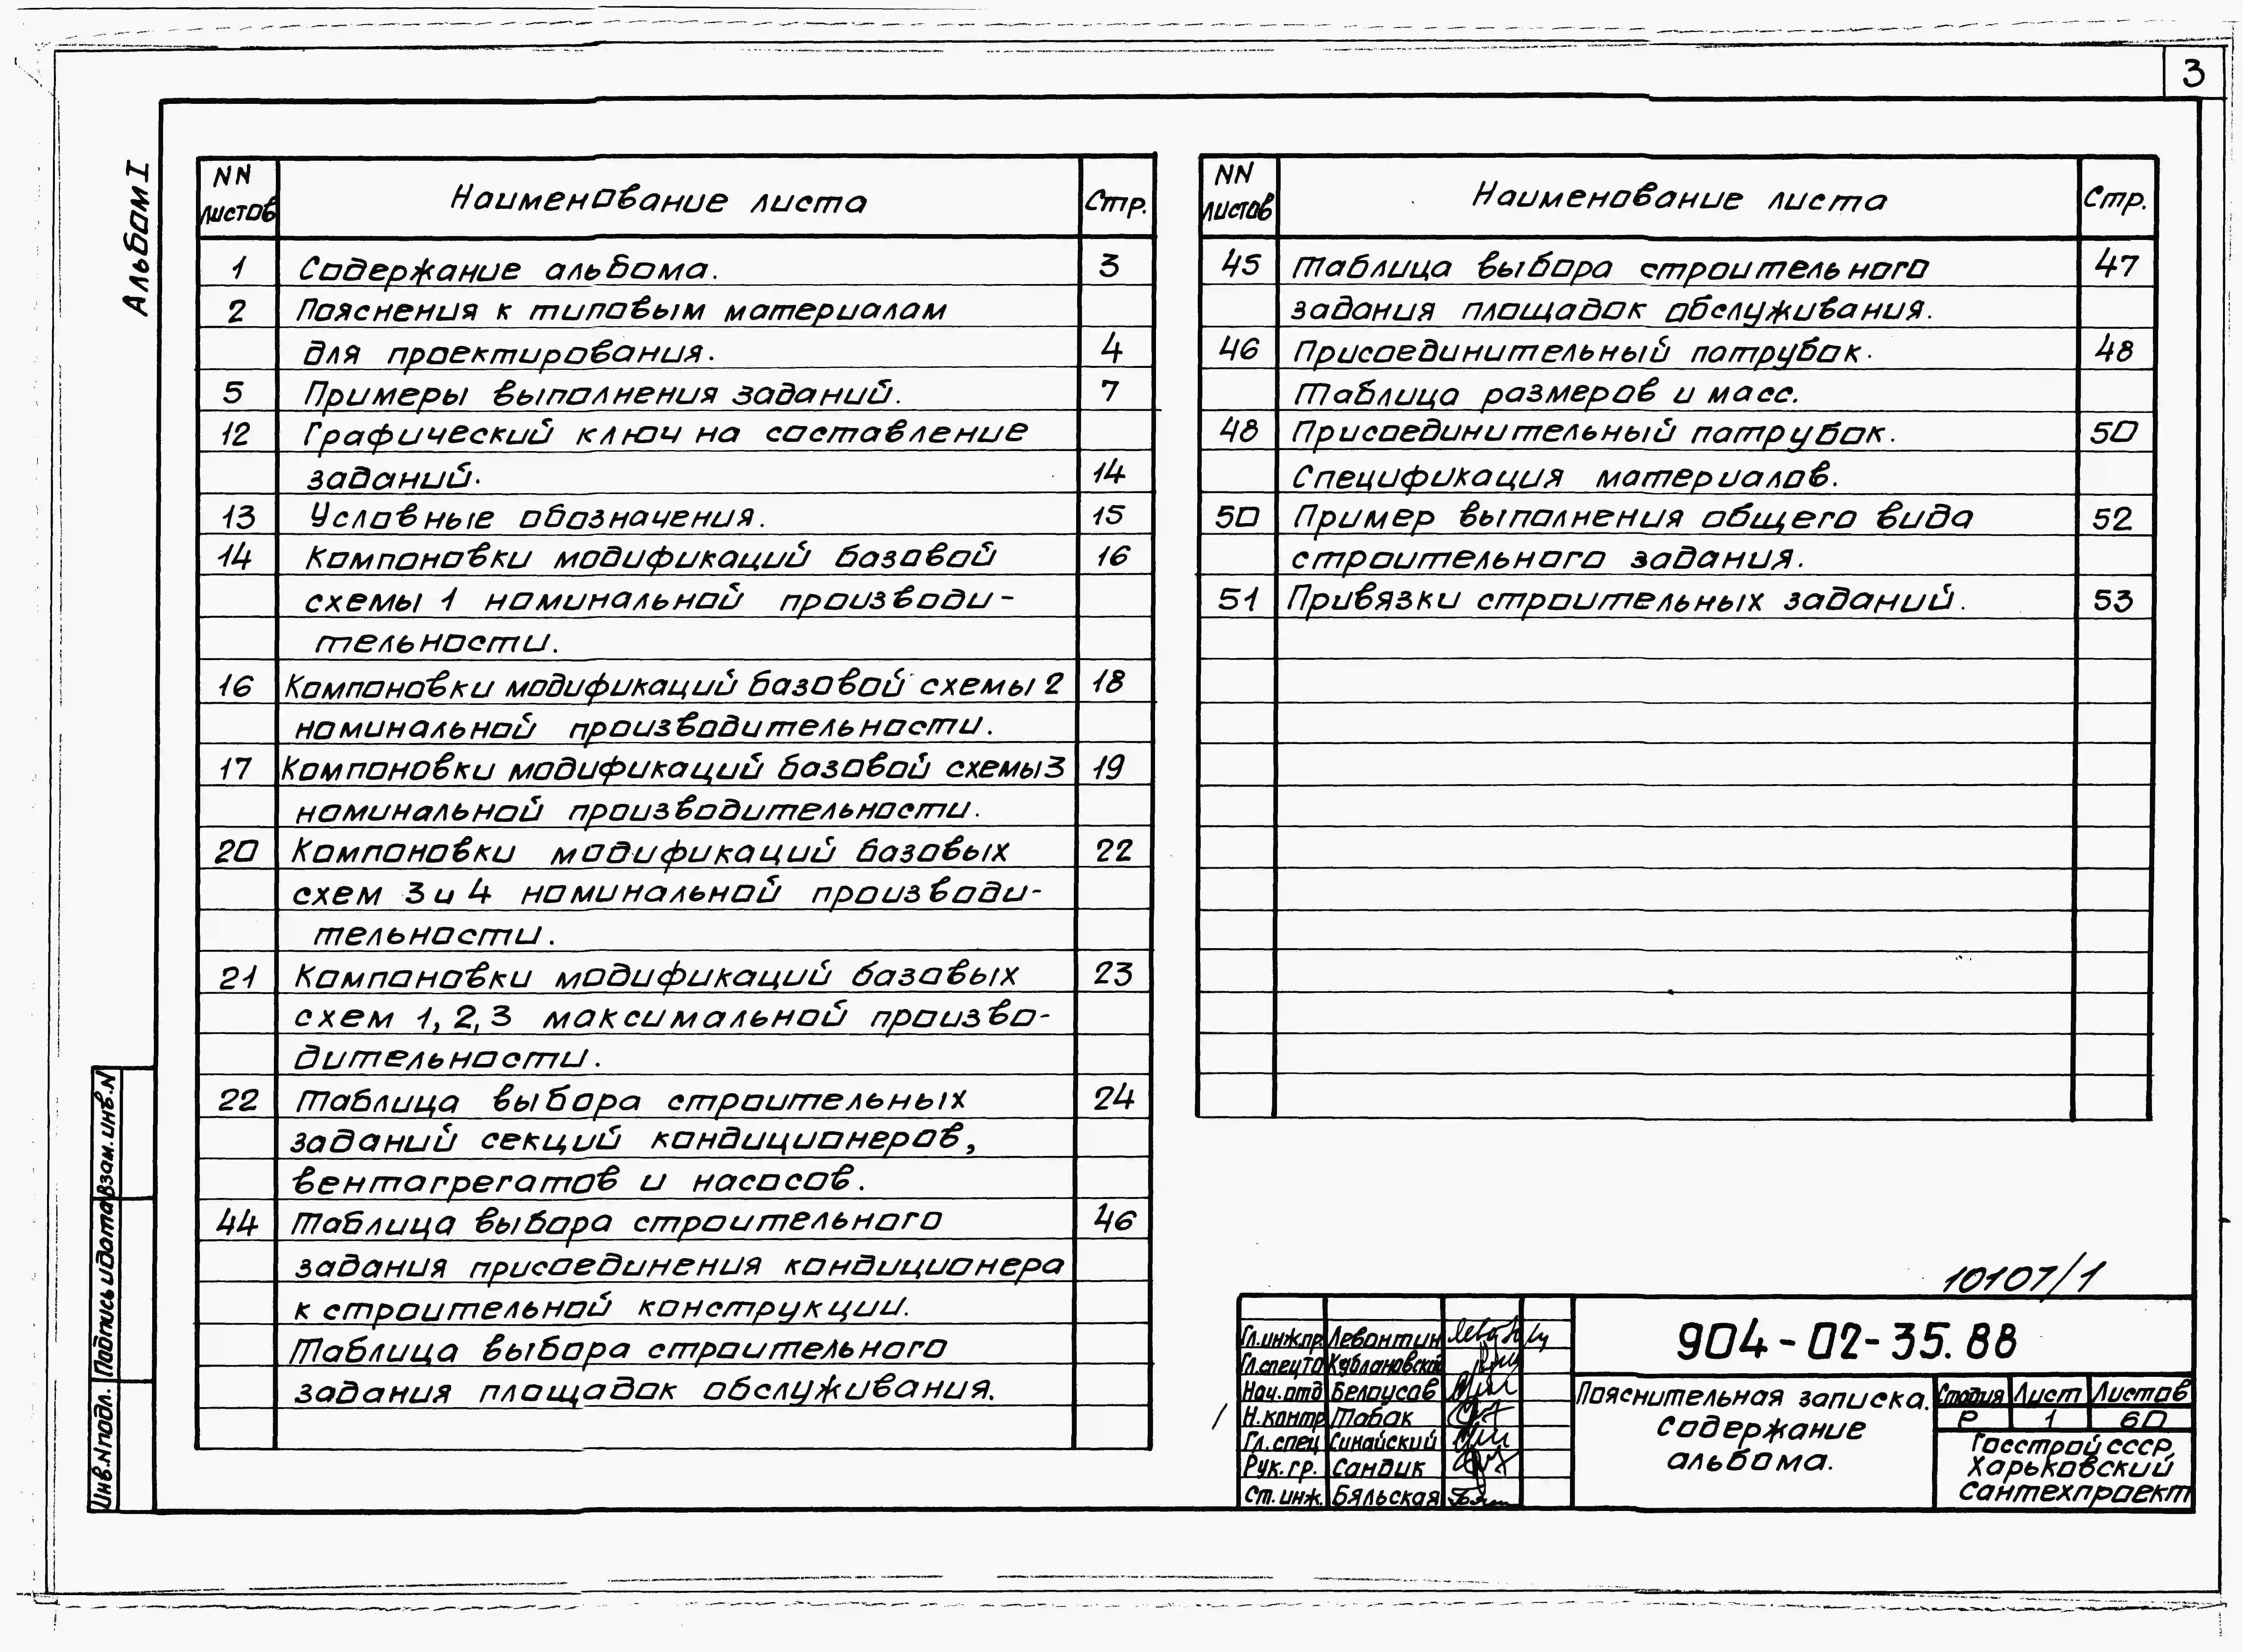 3
Альбом I
NN листов Наименование листа Стр.
1 Содержание альбома. 3
2 Пояснения к типовым материалам
для проектирования. 4
5 Примеры выполнения заданий. 7
12 Графический ключ на составление
заданий. 14
13 Условные обозначения. 15
14 Компоновки модификаций базовой 16
схемы 1 номинальной производи-
тельности.
16 Компоновки модификаций базовой схемы 2 18
номинальной производительности.
17 Компоновки модификаций базовой схемы 3 19
номинальной производительности.
20 Компоновки модификаций базовых 22
схем 3 и 4 номинальной производи-
тельности.
21 Компоновки модификаций базовых 23
схем 1, 2, 3 максимальной произво-
дительности.
22 Таблица выбора строительных 24
заданий секций кондиционеров,
вентагрегатов и насосов.
44 Таблица выбора строительного 46
задания присоединения кондиционера
к строительной конструкции.
Таблица выбора строительного
задания площадок обслуживания.
NN листов Наименование листа Стр.
45 Таблица выбора строительного 47
задания площадок обслуживания.
46 Присоединительный патрубок. 48
Таблица размеров и масс.
48 Присоединительный патрубок. 50
Спецификация материалов.
50 Пример выполнения общего вида 52
строительного задания.
51 Привязки строительных заданий. 53
Взам. инв. N
Подпись и дата
Инв. N подл.
10107/1
Гл.инж.пр. Левонтин
Гл.спец ТО Кублановский
Нач.отд Белоусов
Н.контр Табак
Гл.спец Синайский
Рук.гр. Сандик
Ст.инж. Бяльская
904-02-35.88
Пояснительная записка.
Содержание
альбома.
Стадия Лист Листов
Р 1 60
Госстрой СССР,
Харьковский
Сантехпроект